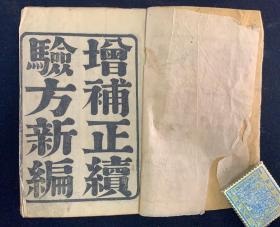 增補正續
驗方新編